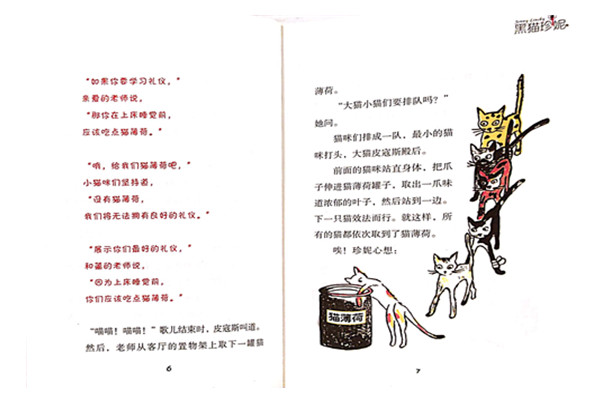 “如果你要学习礼仪，”
亲爱的老师说，
“那你在上床睡觉前，
应该吃点猫薄荷。”
“哦，给我们猫薄荷吧，”
小猫咪们坚持道，
“没有猫薄荷，
我们将无法拥有良好的礼仪。”
“展示你们最好的礼仪，”
和蔼的老师说，
“因为上床睡觉前，
你们应该吃点猫薄荷。”
“喵喵！喵喵！”歌儿结束时，皮寇斯叫道。
然后，老师从客厅的置物架上取下一罐猫
6
黑猫珍妮
薄荷。
“大猫小猫们要排队吗？”
她问。
猫咪们排成一队，最小的猫
咪打头，大猫皮寇斯殿后。
前面的猫咪站直身体，把爪
子伸进猫薄荷罐子，取出一爪味
道浓郁的叶子，然后站到一边。
下一只猫效法而行。就这样，所
有的猫都依次取到了猫薄荷。
唉！珍妮心想：
猫薄荷
7